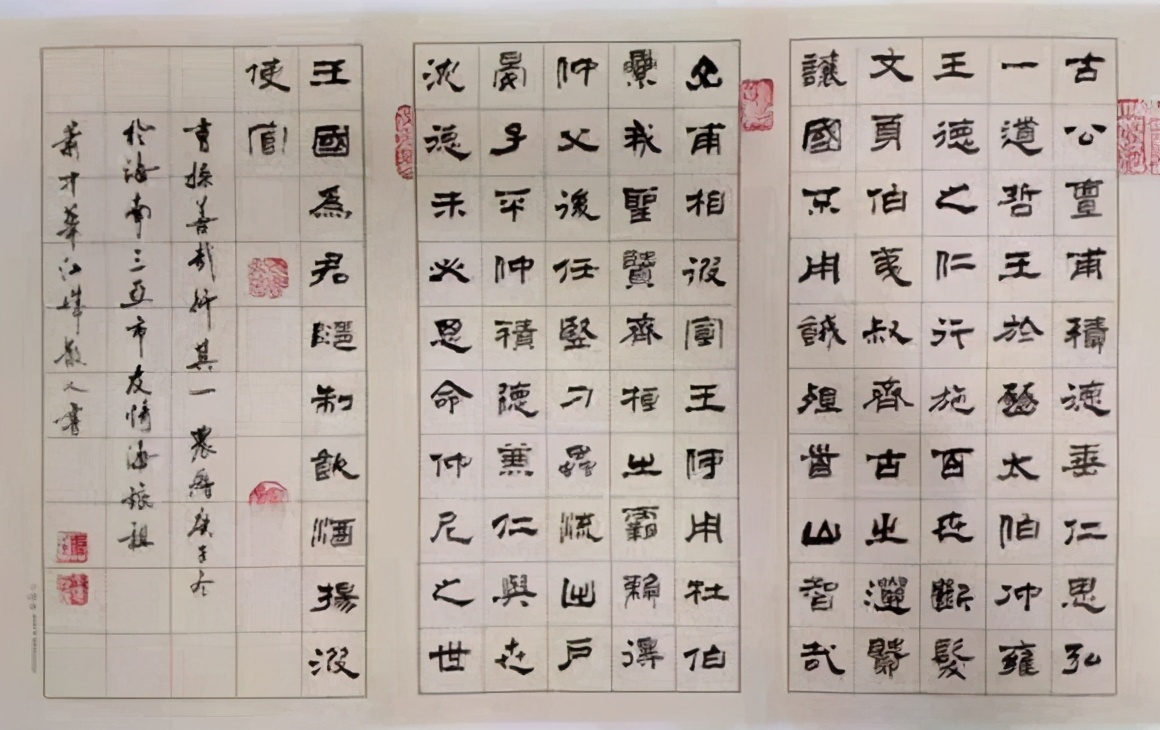 古公亶甫積德垂仁思弘
一道哲王於豳太伯仲雍
王德之仁行施百世斷髮
文身伯夷叔齊古之遺賢
讓國不用餓殂首山智哉
山甫相彼宣王何用杜伯
累我聖賢齊桓之霸賴得
仲父後任竪刁蟲流出戶
晏子平仲積德兼仁與世
沈德未必思命仲尼之世
王國為君隨制飲酒揚波
使官
曹操善哉行其一 農曆庚子冬
於海南三亞市友情海旅租
蕭才華江城散人書